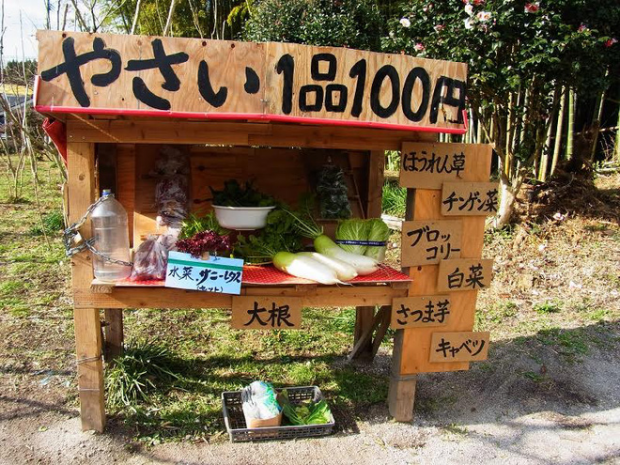 やさい 1品100円
ほうれん草
チンゲン菜
ブロッ
コリー
白菜
さつま芋
キャベツ
水菜、サニーレタス
大根